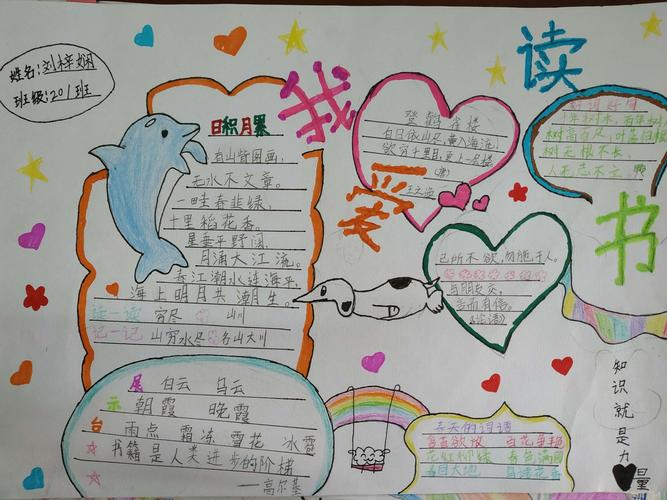 姓名:刘梓娴
班级:201班
我爱读书
日积月累
有山皆图画,
无水不文章。
一畦春韭绿,
十里稻花香。
星垂平野阔,
月涌大江流。
春江潮水连海平,
海上明月共潮生。
读一读 穷尽 山川
记一记 山穷水尽 名山大川
登鹳雀楼
白日依山尽,黄河入海流,
欲穷千里目,更上一层楼。
王之涣
好词好句
树高百尺,叶落归根
树无根不长,
人无志不立。
己所不欲,勿施于人。
与朋友交,
言而有信。
《论语》
展示台
白云 乌云
朝霞 晚霞
雨点 霜冻 雪花 冰雹
书籍是人类进步的阶梯
——高尔基
春天的词语
含苞欲放 百花争艳
花红柳绿 春色满园
春回大地 鸟语花香
知识就是力量